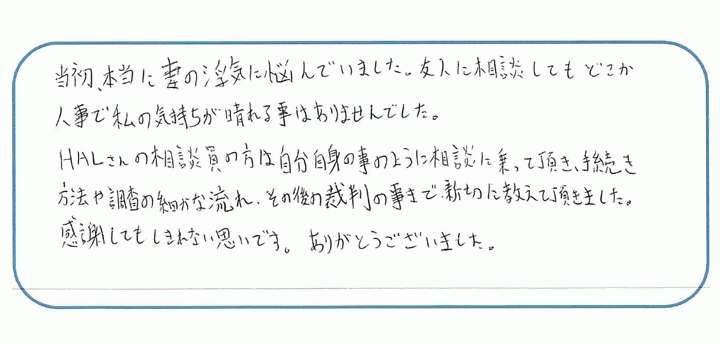 当初、本当に妻の浮気に悩んでいました。友人に相談してもどこか
人事で私の気持ちが晴れる事はありませんでした。
HALさんの相談員の方は自分自身の事のように相談に乗って頂き、手続き
方法や調査の細かな流れ、その後の裁判の事まで、親切に教えて頂きました。
感謝してもしきれない思いです。ありがとうございました。